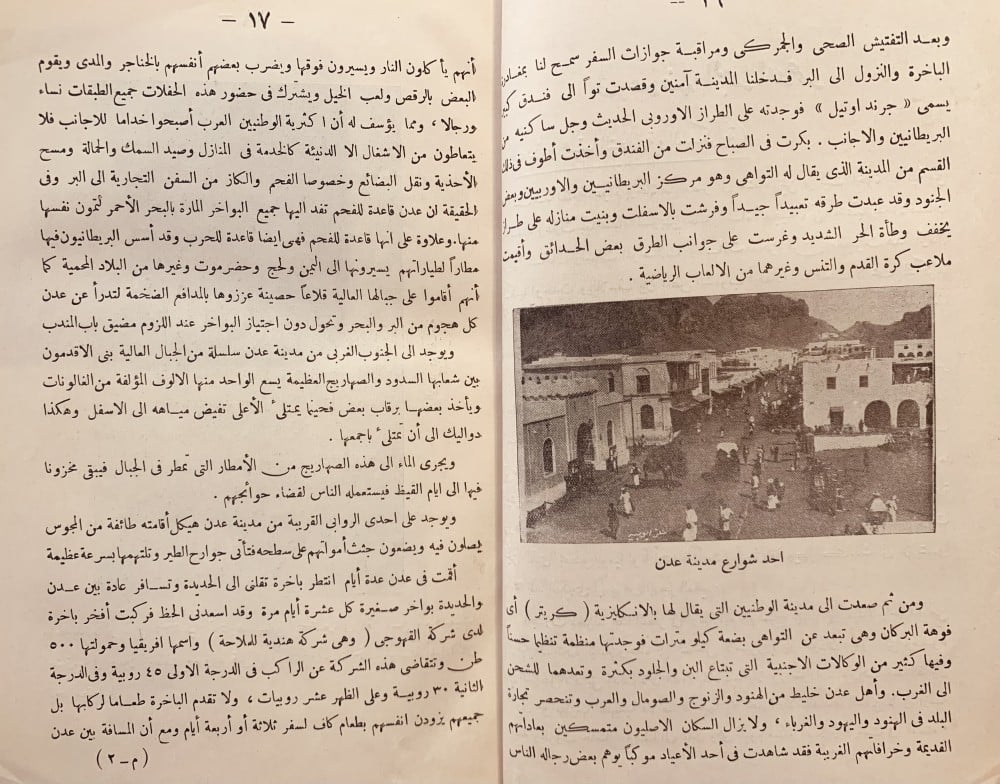 - ١٦ -
وبعد التفتيش الصحى والجمركى ومراقبة جوازات السفر سمح لنا بمغادرة
الباخرة والنزول الى البر فدخلنا المدينة آمنين وقصدت تواً الى فندق كبير
يسمى « جرند اوتيل » فوجدته على الطراز الاوروبى الحديث وجل ساكنيه من
البريطانيين والاجانب . بكرت فى الصباح فنزلت من الفندق وأخذت أطوف فى ذلك
القسم من المدينة الذى يقال له التواهى وهو مركز البريطانيين والاوربيين وبعض
الجنود وقد عبدت طرقه تعبيداً جيداً وفرشت بالاسفلت وبنيت منازله على طراز
يخفف وطأة الحر الشديد وغرست على جوانب الطرق بعض الحدائق وأقيمت
ملاعب كرة القدم والتنس وغيرهما من الالعاب الرياضية .
احد شوارع مدينة عدن
ومن ثم صعدت الى مدينة الوطنيين التى يقال لها بالانكليزية ( كريتر ) أى
فوهة البركان وهى تبعد عن التواهى بضعة كيلو مترات فوجدتها منظمة تنظيما حسناً
وفيها كثير من الوكالات الاجنبية التى تبتاع البن والجلود بكثرة وتعدهما للشحن
الى الغرب . وأهل عدن خليط من الهنود والزنوج والصومال والعرب وتنحصر تجارة
البلد فى الهنود واليهود والغرباء ، ولا يزال السكان الاصليون متمسكين بعاداتهم
القديمة وخرافاتهم الغريبة فقد شاهدت فى أحد الأعياد موكباً يوهم بعض رجاله الناس
- ١٧ -
أنهم يأكلون النار ويسيرون فوقها ويضرب بعضهم أنفسهم بالخناجر والمدى ويقوم
البعض بالرقص ولعب الخيل ويشترك فى حضور هذه الحفلات جميع الطبقات نساء
ورجالا ، ومما يؤسف له أن اكثرية الوطنيين العرب أصبحوا خداما للاجانب فلا
يتعاطون من الاشغال الا الدنيئة كالخدمة فى المنازل وصيد السمك والحمالة ومسح
الأحذية ونقل البضائع وخصوصا الفحم والكاز من السفن التجارية الى البر وفى
الحقيقة ان عدن قاعدة للفحم تفد اليها جميع البواخر المارة بالبحر الأحمر لتمون نفسها
منها . وعلاوة على انها قاعدة للفحم فهى ايضا قاعدة للحرب وقد أسس البريطانيون فيها
مطاراً لطياراتهم يسيرونها الى اليمن ولحج وحضرموت وغيرها من البلاد المحمية كما
أنهم أقاموا على جبالها العالية قلاعاً حصينة عززوها بالمدافع الضخمة لتدرأ عن عدن
كل هجوم من البر والبحر وتحول دون اجتياز البواخر عند اللزوم مضيق باب المندب
ويوجد الى الجنوب الغربى من مدينة عدن سلسلة من الجبال العالية بنى الاقدمون
بين شعابها السدود والصهاريج العظيمة يسع الواحد منها الالوف المؤلفة من الغالونات
ويأخذ بعضها برقاب بعض فحينما يمتلىء الأعلى تفيض مياهه الى الاسفل وهكذا
دواليك الى أن تمتلىء باجمعها .
ويجرى الماء الى هذه الصهاريج من الأمطار التى تمطر فى الجبال فيبقى مخزونا
فيها الى ايام القيظ فيستعمله الناس لقضاء حوائجهم .
ويوجد على احدى الروابى القريبة من مدينة عدن هيكل أقامته طائفة من المجوس
يصلون فيه ويضعون جثث أمواتهم على سطحه فتأتى جوارح الطير وتلتهمها بسرعة عظيمة
أقمت فى عدن عدة أيام انتطر باخرة تقلنى الى الحديدة وتسافر عادة بين عدن
والحديدة بواخر صغيرة كل عشرة أيام مرة وقد اسعدنى الحظ فركبت أفخر باخرة
لدى شركة القهوجى ( وهى شركة هندية للملاحة ) واسمها افريقيا وحمولتها ٥٠٠
طن وتتقاضى هذه الشركة عن الراكب فى الدرجة الاولى ٤٥ روبية وفى الدرجة
الثانية ٣٠ روبية وعلى الظهر عشر روبيات ، ولا تقدم الباخرة طعاما لركابها بل
جميعهم يزودن انفسهم بطعام كاف لسفر ثلاثة أو أربعة أيام ومع أن المسافة بين عدن
( م – ٢ )